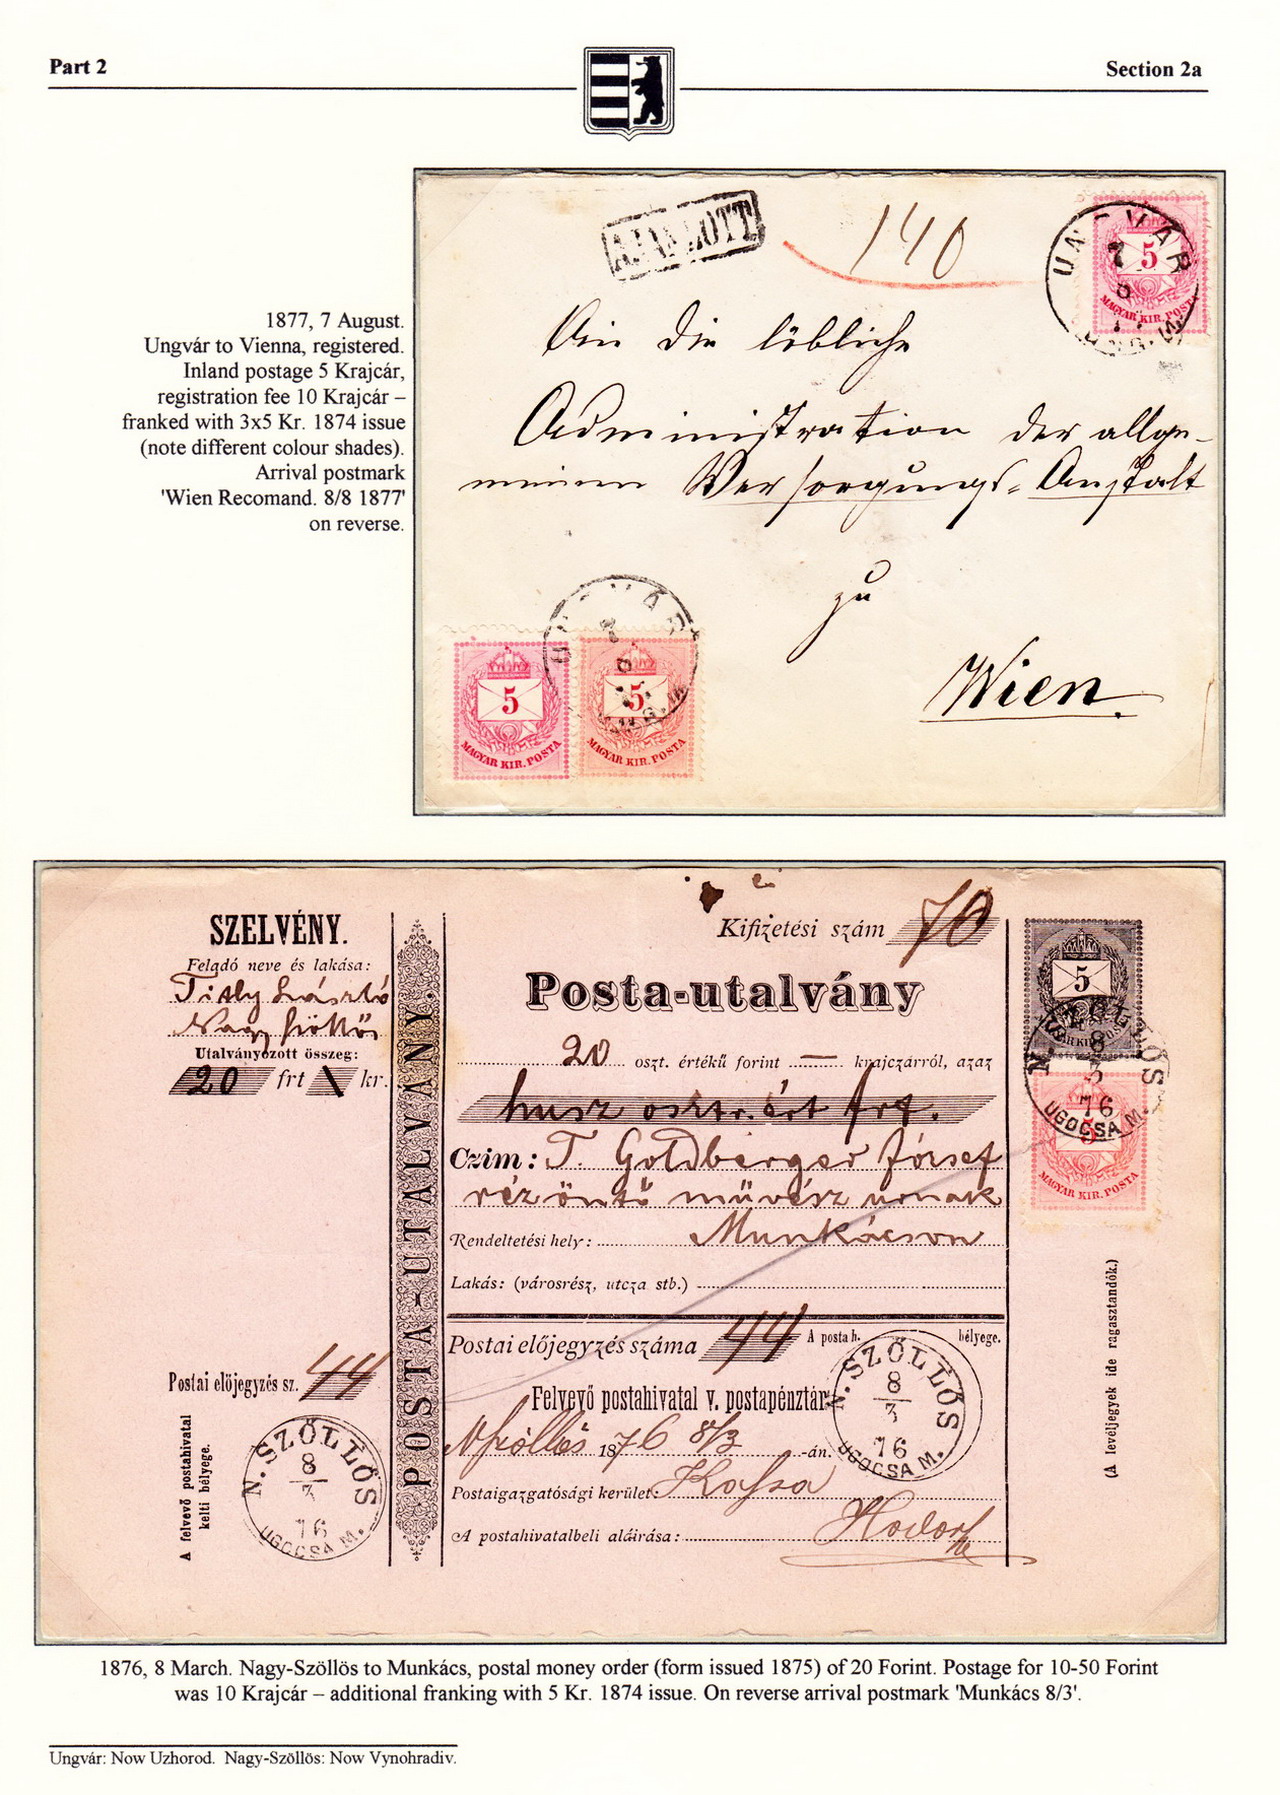 Part 2
Section 2a
1877, 7 August.
Ungvár to Vienna, registered.
Inland postage 5 Krajcár,
registration fee 10 Krajcár –
franked with 3x5 Kr. 1874 issue
(note different colour shades).
Arrival postmark
'Wien Recomand. 8/8 1877'
on reverse.
AJÁNLOTT
140
UNGVÁR
5
MAGYAR KIR. POSTA
An die löbliche
Administration der allge-
meinen Versorgungs-Anstalt
zu
Wien.
UNGVÁR
5
MAGYAR KIR. POSTA
5
MAGYAR KIR. POSTA
SZELVÉNY.
Feladó neve és lakása:
László
Nagy Szöllös
Utalványozott összeg:
20 frt kr.
Postai előjegyzés sz. 44
A felvevő postahivatal
kelti bélyege.
N. SZŐLLŐS
8
3
76
UGOCSA M.
POSTA-UTALVÁNY.
Kifizetési szám 70
Posta-utalvány
20 oszt. értékű forint — krajczárról, azaz
husz osztr. ért frt.
Czim: T. Goldberger József
rézöntő művész urnak
Rendeltetési hely: Munkácson
Lakás: (városrész, utcza stb.)
Postai előjegyzés száma 44
A posta h. bélyege.
Felvevő postahivatal v. postapénztár
Nszöllös 1876 8/3 -án.
Postaigazgatósági kerület: Kassa
A postahivatalbeli aláirása:
N. SZŐLLŐS
8
3
76
UGOCSA M.
5
N. SZŐLLŐS
8
3
76
UGOCSA M.
5
MAGYAR KIR. POSTA
(A levéljegyek ide ragasztandók.)
1876, 8 March. Nagy-Szöllös to Munkács, postal money order (form issued 1875) of 20 Forint. Postage for 10-50 Forint
was 10 Krajcár – additional franking with 5 Kr. 1874 issue. On reverse arrival postmark 'Munkács 8/3'.
Ungvár: Now Uzhorod. Nagy-Szöllös: Now Vynohradiv.